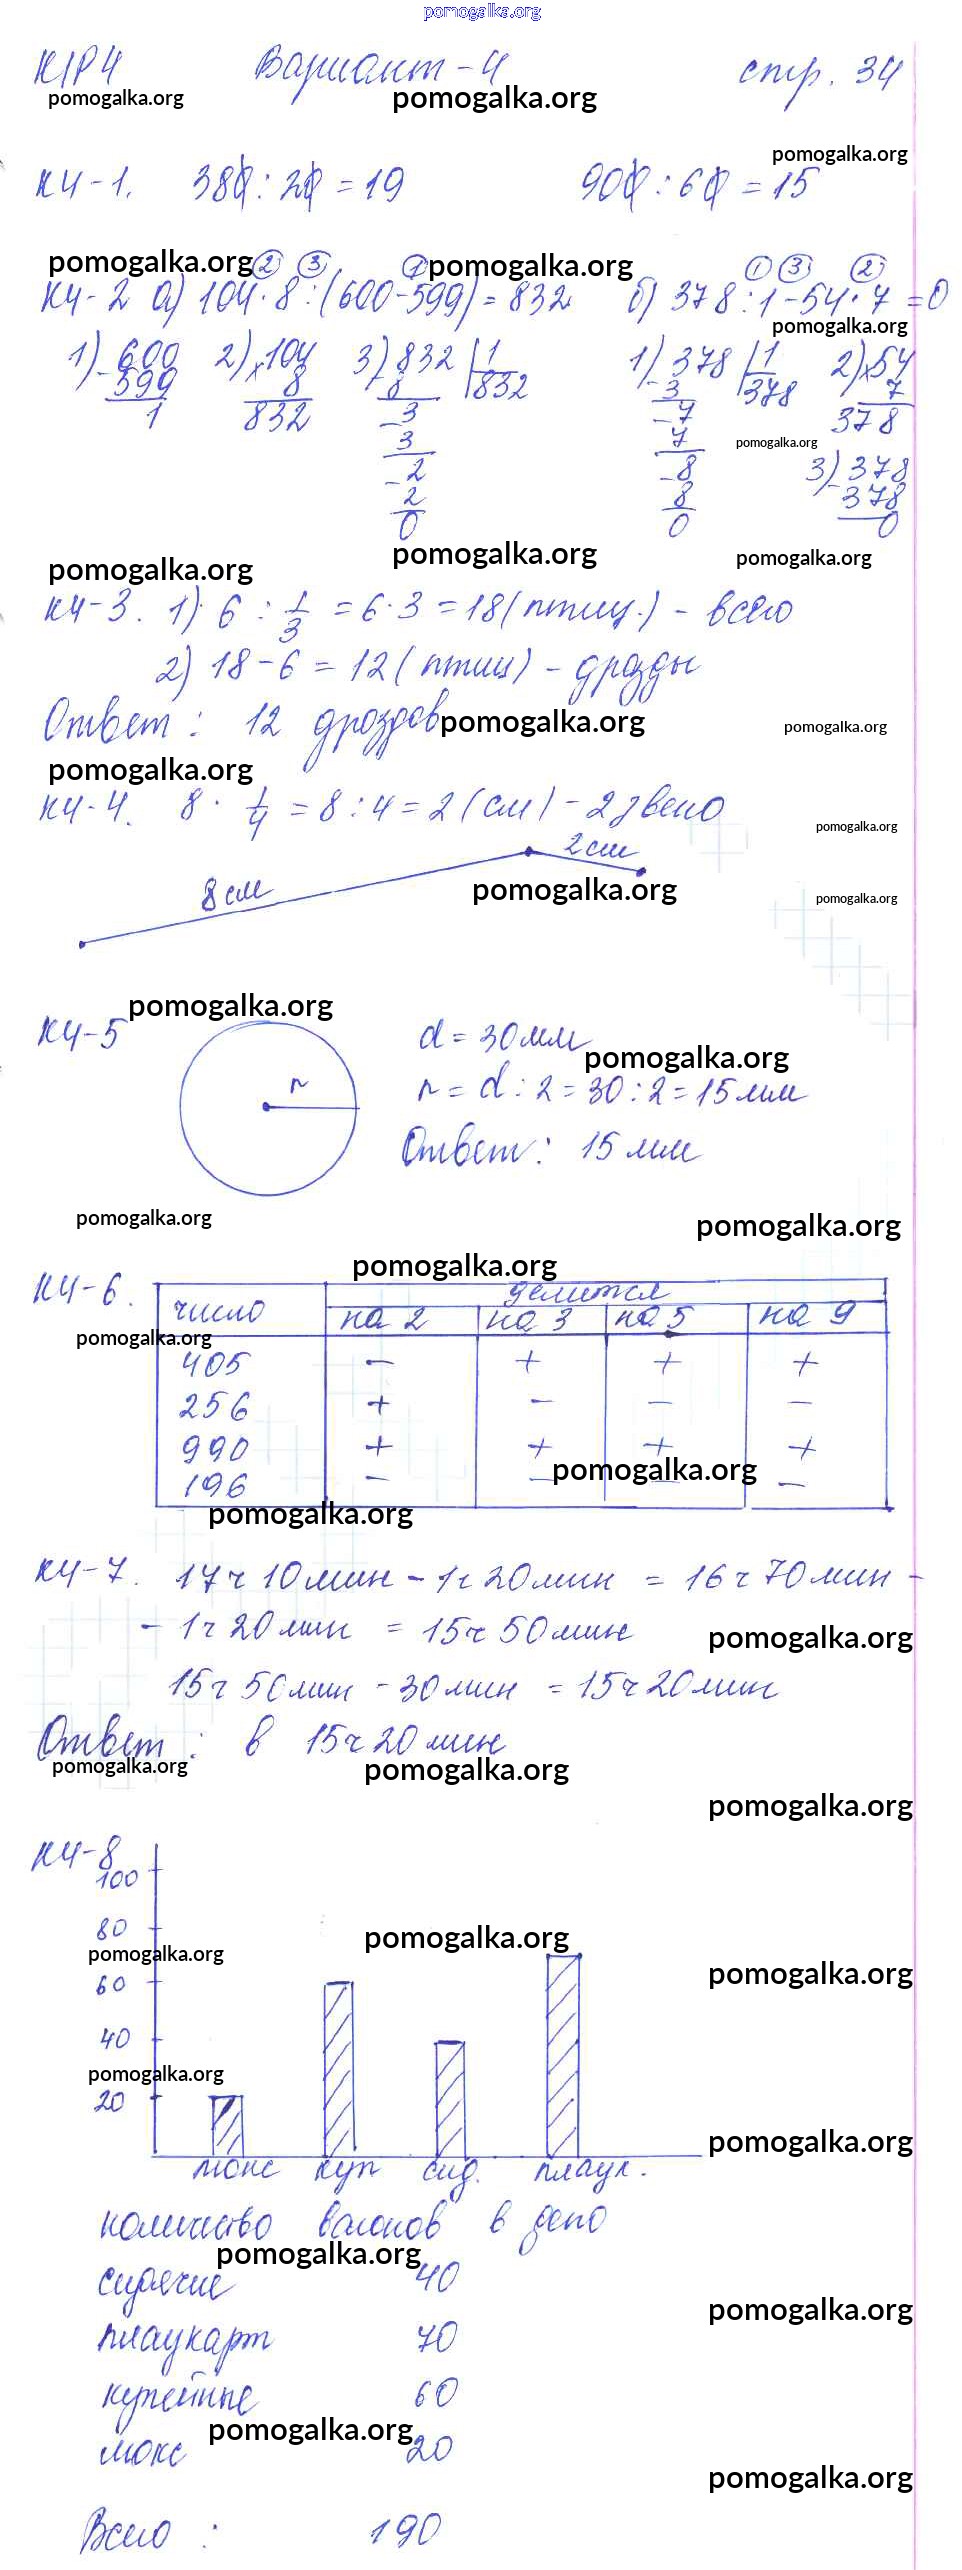 pomogalka.org
К/Р 4 Вариант - 4 стр. 34
pomogalka.org pomogalka.org
pomogalka.org
К4-1. 380 : 20 = 19 900 : 60 = 15
pomogalka.org 2 3 1 pomogalka.org 1 3 2
К4-2 а) 104 · 8 : (600-599) = 832 б) 378 : 1 - 54 · 7 = 0
pomogalka.org
1) - 600 2) x 104 3) 832 | 1 1) 378 | 1 2) x 54
599 8 - 8 832 - 3 378 7
1 832 - 3 - 7 378
3 7 pomogalka.org
- 2 - 8 3) - 378
2 8 378
0 0 0
pomogalka.org pomogalka.org pomogalka.org
К4-3. 1) 6 : 1/3 = 6 · 3 = 18 (птиц.) - всего
2) 18 - 6 = 12 (птиц) - дрозды
Ответ: 12 дроздов pomogalka.org pomogalka.org
pomogalka.org
К4-4. 8 · 1/4 = 8 : 4 = 2 (см) - 2 звено
pomogalka.org
2 см
8 см pomogalka.org pomogalka.org
pomogalka.org
К4-5 d = 30 мм
pomogalka.org
r r = d : 2 = 30 : 2 = 15 мм
Ответ: 15 мм
pomogalka.org pomogalka.org
pomogalka.org
К4-6. число делится
на 2 на 3 на 5 на 9
pomogalka.org
405 - + + +
256 + - - -
990 + + + +
pomogalka.org
196 - - - -
pomogalka.org
К4-7. 17 ч 10 мин - 1 ч 20 мин = 16 ч 70 мин -
- 1 ч 20 мин = 15 ч 50 мин
pomogalka.org
15 ч 50 мин - 30 мин = 15 ч 20 мин
Ответ: в 15 ч 20 мин
pomogalka.org pomogalka.org
pomogalka.org
К4-8
100
80
pomogalka.org pomogalka.org
pomogalka.org
60
40
pomogalka.org
20
pomogalka.org
мокс куп сид. плацк.
количество вагонов в депо
pomogalka.org
сидячие 40
pomogalka.org
плацкарт 70
купейные 60
pomogalka.org
мокс 20
pomogalka.org
Всего : 190